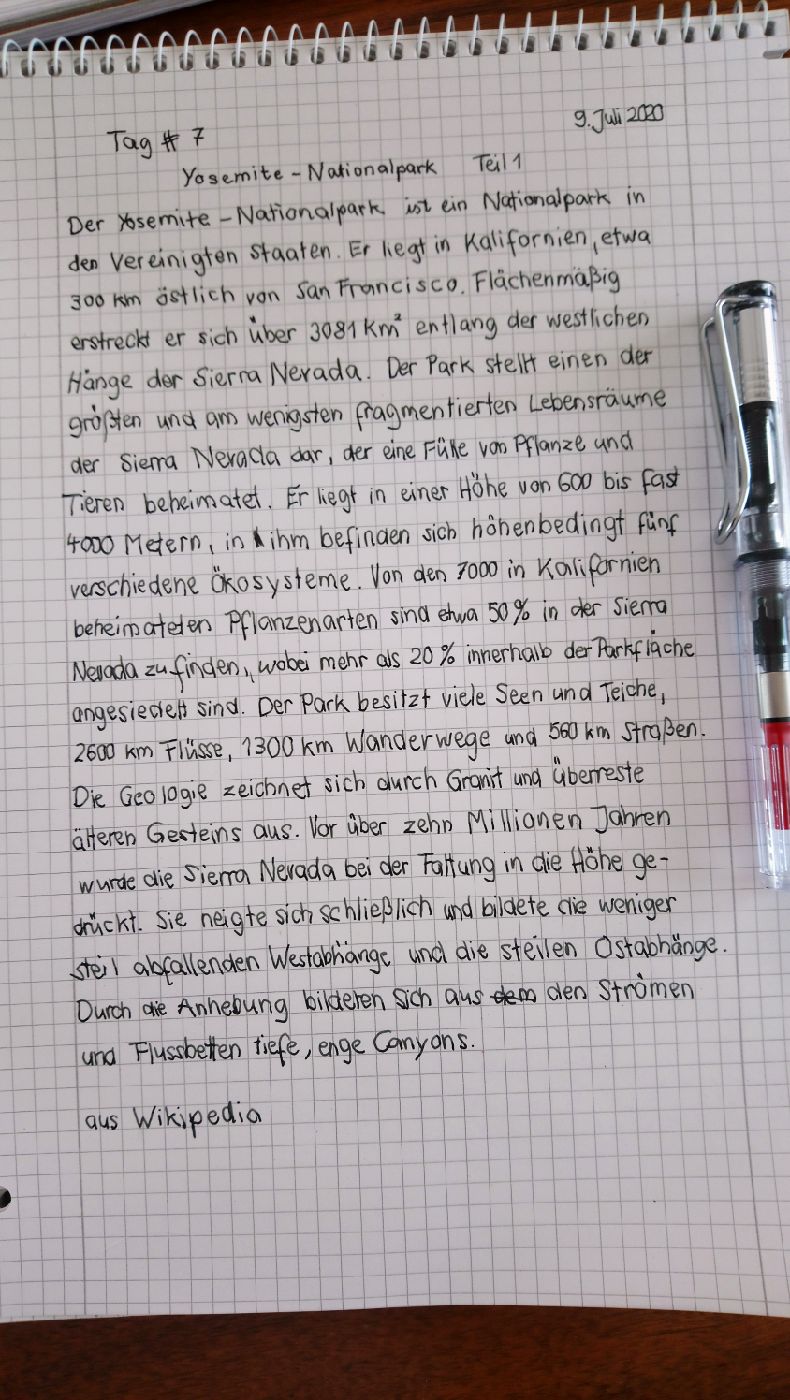 9. Juli 2020
Tag # 7
Yosemite - Nationalpark Teil 1
Der Yosemite - Nationalpark ist ein Nationalpark in
den Vereinigten Staaten. Er liegt in Kalifornien, etwa
300 km östlich von San Francisco. Flächenmäßig
erstreckt er sich über 3081 km² entlang der westlichen
Hänge der Sierra Nevada. Der Park stellt einen der
größten und am wenigsten fragmentierten Lebensräume
der Sierra Nevada dar, der eine Fülle von Pflanze und
Tieren beheimatet. Er liegt in einer Höhe von 600 bis fast
4000 Metern, in ihm befinden sich höhenbedingt fünf
verschiedene Ökosysteme. Von den 7000 in Kalifornien
beheimateten Pflanzenarten sind etwa 50% in der Sierra
Nevada zu finden, wobei mehr als 20% innerhalb der Parkfläche
angesiedelt sind. Der Park besitzt viele Seen und Teiche,
2600 km Flüsse, 1300 km Wanderwege und 560 km Straßen.
Die Geologie zeichnet sich durch Granit und Überreste
älteren Gesteins aus. Vor über zehn Millionen Jahren
wurde die Sierra Nevada bei der Faltung in die Höhe ge-
drückt. Sie neigte sich schließlich und bildete die weniger
steil abfallenden Westabhänge und die steilen Ostabhänge.
Durch die Anhebung bildeten sich aus dem den Strömen
und Flussbetten tiefe, enge Canyons.
aus Wikipedia